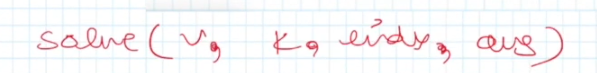 solve(v, k, eindx, ans)